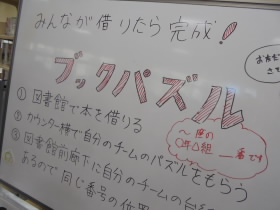 みんなが借りたら完成！
ブックパズル
①図書館で本を借りる
②カウンター横で自分のチームのパズルをもらう
③図書館前廊下に自分のチームの台
あるので同じ番号の位置
〜座の
番です